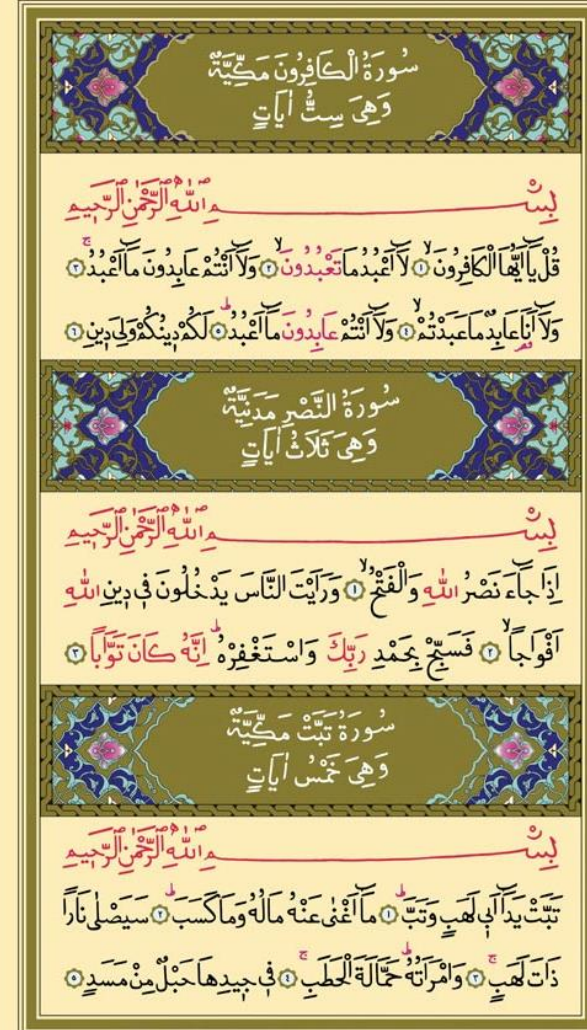 سُورَةُ الْكَافِرُونَ مَكِّيَّةٌ
وَهِيَ سِتُّ اٰيَاتٍ
بِسْمِ اللّٰهِ الرَّحْمٰنِ الرَّحِيمِ
قُلْ يَٓا اَيُّهَا الْكَافِرُونَۙ ﴿١﴾ لَٓا اَعْبُدُ مَا تَعْبُدُونَۙ ﴿٢﴾ وَلَٓا اَنْتُمْ عَابِدُونَ مَٓا اَعْبُدُۚ ﴿٣﴾
وَلَٓا اَنَا۬ عَابِدٌ مَا عَبَدْتُمْۙ ﴿٤﴾ وَلَٓا اَنْتُمْ عَابِدُونَ مَٓا اَعْبُدُۜ ﴿٥﴾ لَكُمْ دِينُكُمْ وَلِيَ دِينِ ﴿٦﴾
سُورَةُ النَّصْرِ مَدَنِيَّةٌ
وَهِيَ ثَلَاثُ اٰيَاتٍ
بِسْمِ اللّٰهِ الرَّحْمٰنِ الرَّحِيمِ
اِذَا جَٓاءَ نَصْرُ اللّٰهِ وَالْفَتْحُۙ ﴿١﴾ وَرَاَيْتَ النَّاسَ يَدْخُلُونَ ف۪ي د۪ينِ اللّٰهِ
اَفْوَاجاًۙ ﴿٢﴾ فَسَبِّحْ بِحَمْدِ رَبِّكَ وَاسْتَغْفِرْهُۜ اِنَّهُ كَانَ تَوَّاباً ﴿٣﴾
سُورَةُ تَبَّتْ مَكِّيَّةٌ
وَهِيَ خَمْسُ اٰيَاتٍ
بِسْمِ اللّٰهِ الرَّحْمٰنِ الرَّحِيمِ
تَبَّتْ يَدَٓا اَب۪ي لَهَبٍ وَتَبَّۜ ﴿١﴾ مَٓا اَغْنٰى عَنْهُ مَالُهُ وَمَا كَسَبَۜ ﴿٢﴾ سَيَصْلٰى نَاراً
ذَاتَ لَهَبٍۚ ﴿٣﴾ وَامْرَاَتُهُۜ حَمَّالَةَ الْحَطَبِۚ ﴿٤﴾ ف۪ي ج۪يدِهَا حَبْلٌ مِنْ مَسَدٍ ﴿٥﴾